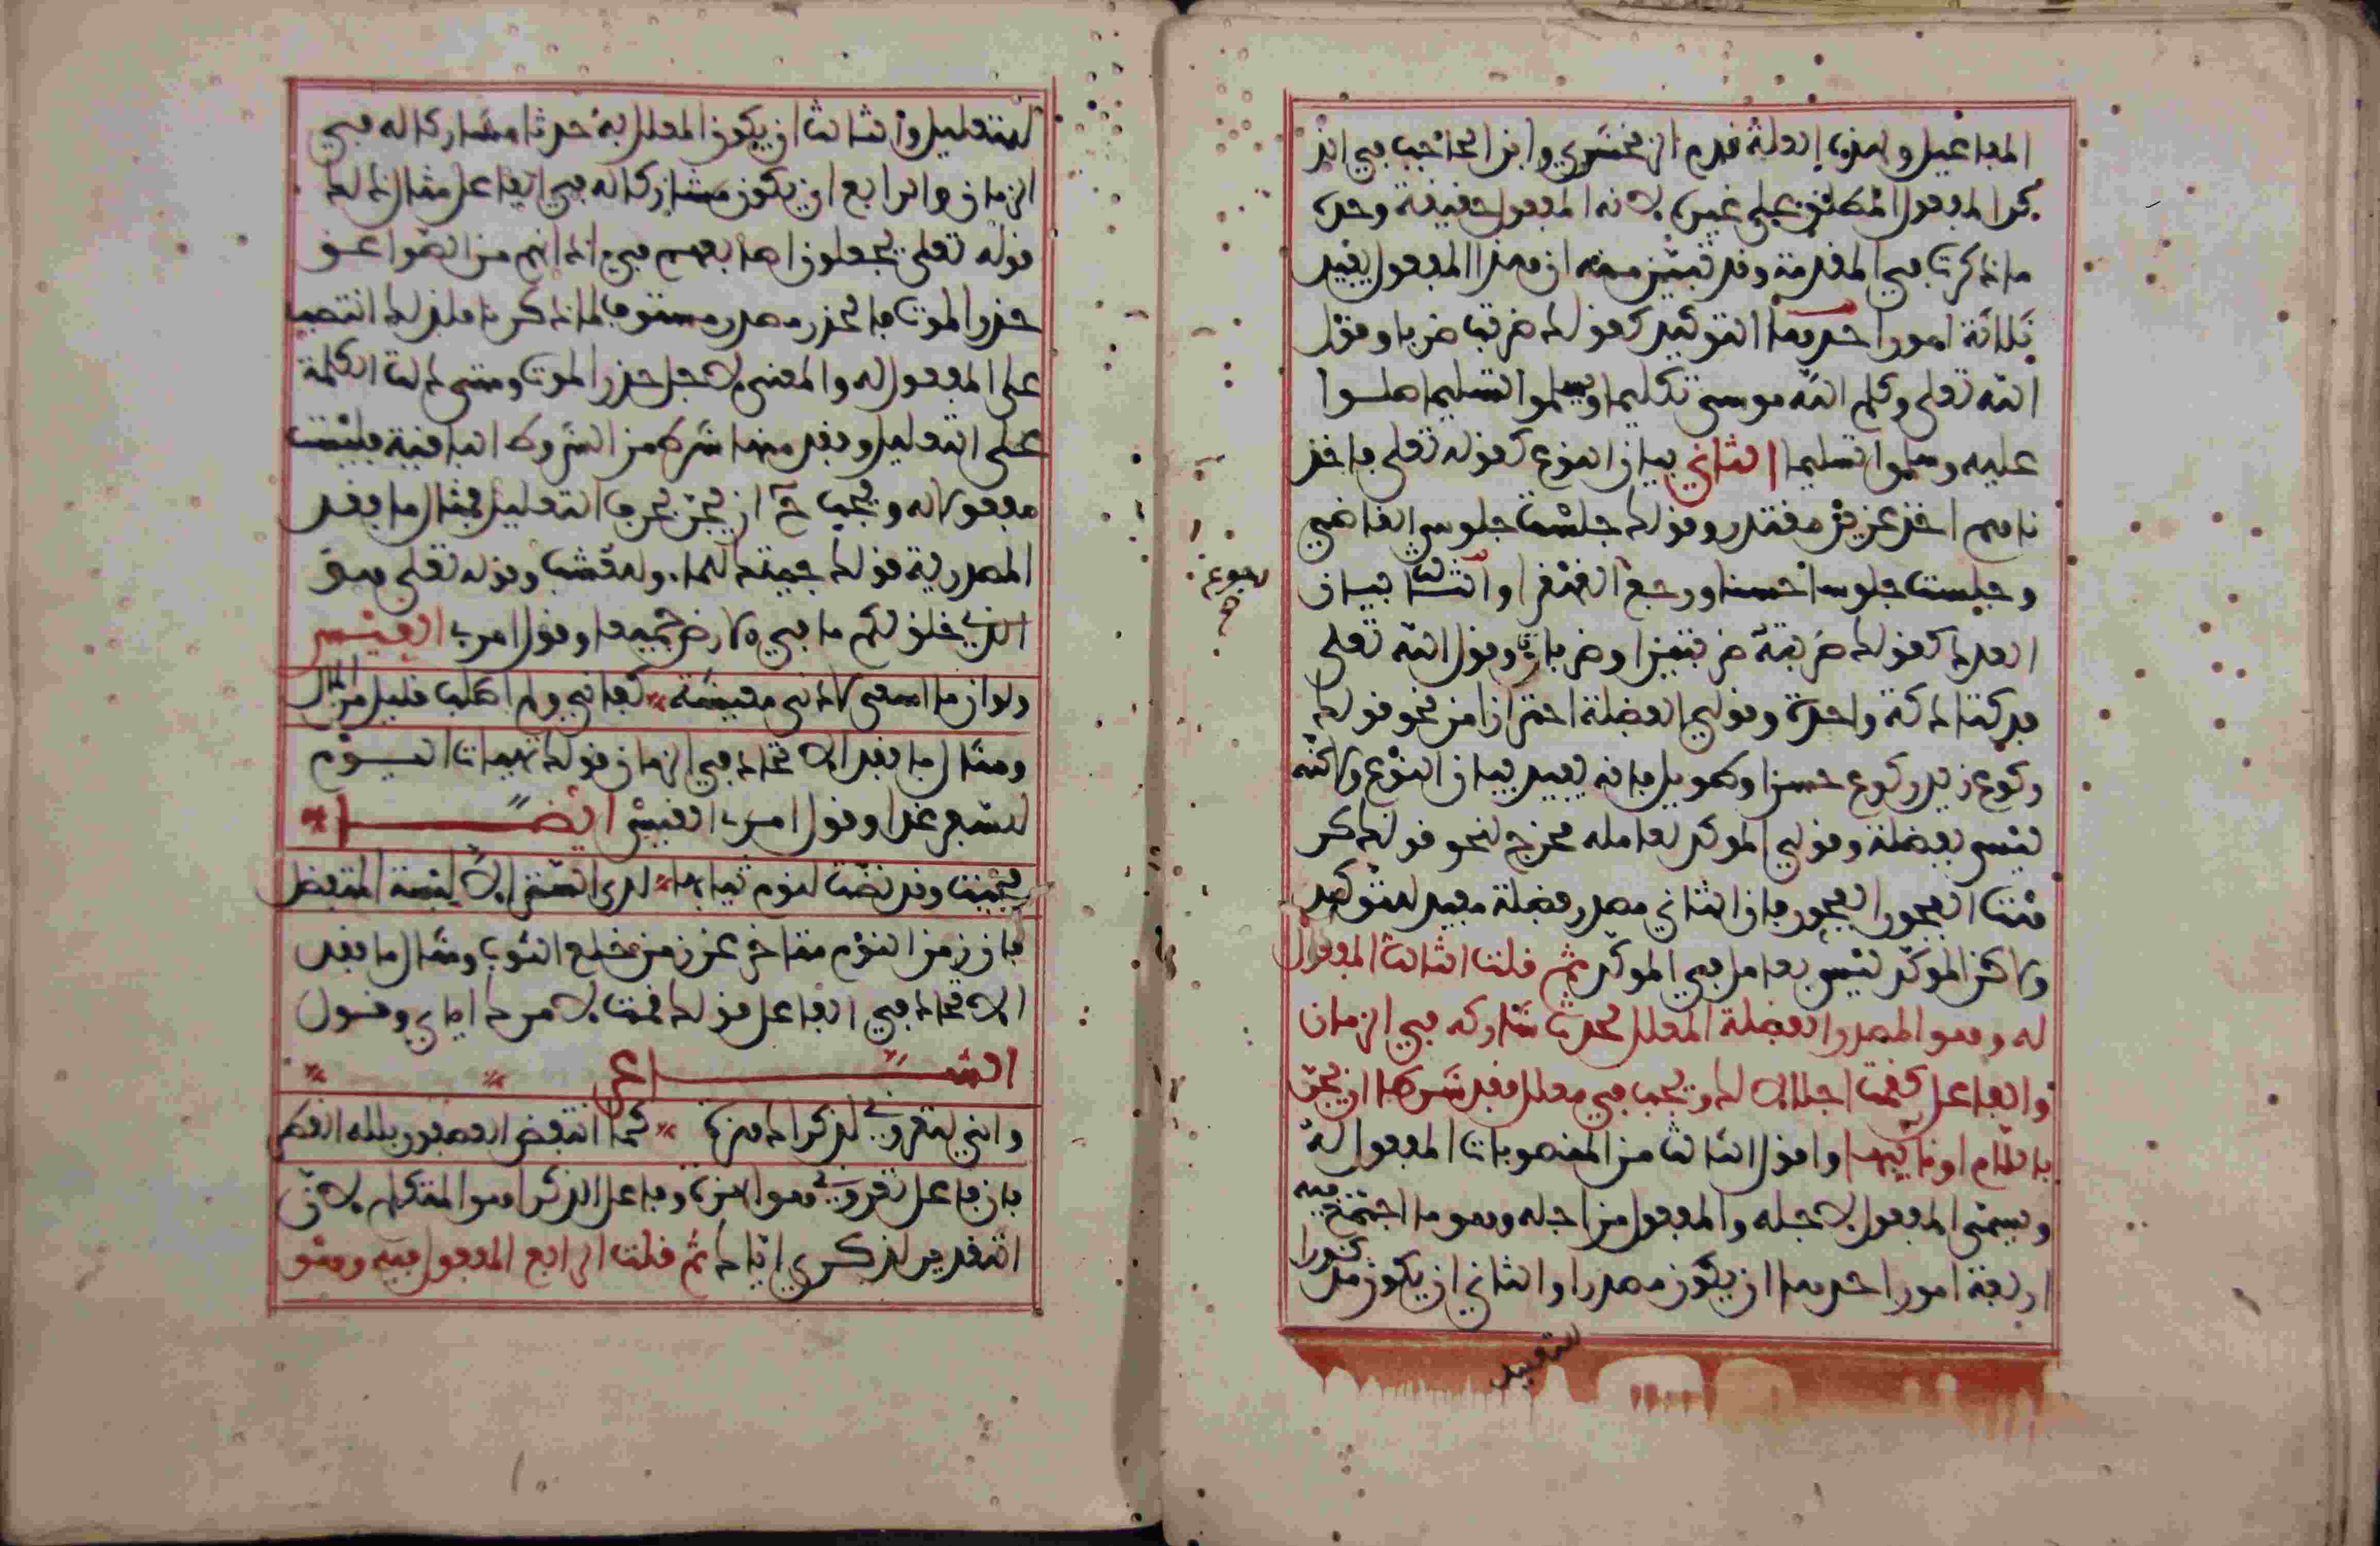 المفاعيل ولهذه العلة قدم الزمخشري وابن الحاجب في الذ
كر المفعول المطلق على غيره لانه المفعول حقيقة وحده
ما ذكرت في المقدمة وقد تبين منه ان هذا المفعول يفيد
ثلاثة امور احدها التوكيد كقولك ضربت ضربا وقول
الله تعلى وكلم الله موسى تكليما ويسلموا تسليما صلوا
عليه وسلموا تسليما الثاني بيان النوع كقوله تعلى فاخذ
ناهم اخذ عزيز مقتدر وقولك جلست جلوس القاضي
وجلست جلوسا حسنا ورجع القهقرا والثالث بيان
رجوع
العدد كقولك ضربته ضربتين او ضربات وقول الله تعلى
فدكتا دكة واحدة وقولي الفضلة احترازا من نحو قولك
ركوع زيد ركوع حسن او طويل فانه يفيد بيان النوع ولاكنه
ليس بفضلة وقولي الموكد لعامله مخرج لنحو قولك كر
هت الفجور الفجور فان الثاني مصدر فضلة مفيد للتوكيد
ولاكن الموكد ليس بعامل في الموكد ثم قلت الثالث المفعول
له وهو المصدر الفضلة المعلل لحدث شاركه في الزمان
والفاعل كقمت اجلالا لك ويجب في معلل فقد شرطا ان يجر
باللام او نايبها واقول الثالث من المنصوبات المفعول له
ويسمى المفعول لاجله والمفعول من اجله وهو ما اجتمع فيه
اربعة امور احدها ان يكون مصدرا والثاني ان يكون مذكورا
للتعليل والثالث ان يكون المعلل به حدثا مشاركا له في
الزمان والرابع ان يكون مشاركا له في الفاعل مثال ذلك
قوله تعلى يجعلون اصابعهم في ءاذانهم من الصواعـــق
حذر الموت فالحذر مصدر مستوف لما ذكرنا فلذلك انتصب
على المفعول له والمعنى لاجل حذر الموت ومتى دلت الكلمة
على التعليل وفقد منها شرط من الشروط الباقية فليست
مفعولا له ويجب ح ان يجر بحرف التعليل فمثال ما فقد
المصدرية قولك جيتك للماء وللعشب وقوله تعلى هو
الذي خلق لكم ما في الارض جميعا وقول امرء القيس
ولو ان ما اسعى لادنى معيشة كفاني ولم اطلب قليل من المال
ومثال ما فقد الاتحاد في الزمان قولك تهيات اليــوم
للسفر غدا وقول امرء القيس ايضــــا
فجيت وقد نضت لنوم ثيابها لدى الستر الا لبسة المتفضل
فان زمن النوم متاخر عن زمن خلع الثوب ومثال ما فقد
الاتحاد في الفاعل قولك قمت لامرك اياي وقـول
الشـــــاعر
واني لتعروني لذكراك هزة كما انتفض العصفور بلله القطر
فان فاعل تعروني هو الهزة وفاعل الذكرا هو المتكلم لان
التقدير لذكري اياك ثم قلت الرابع المفعول فيه وهو